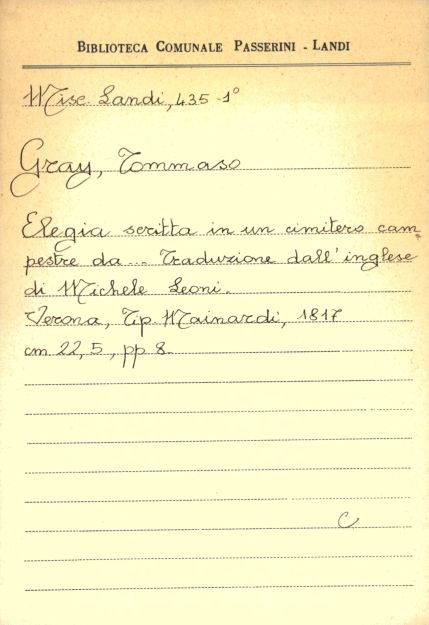 BIBLIOTECA COMUNALE PASSERINI - LANDI
Misc. Landi, 435-1°
Gray, Tommaso
Elegia scritta in un cimitero cam=
pestre da... Traduzione dall'inglese
di Michele Leoni.
Verona, Tip. Mainardi, 1817
cm 22,5, pp 8.
C